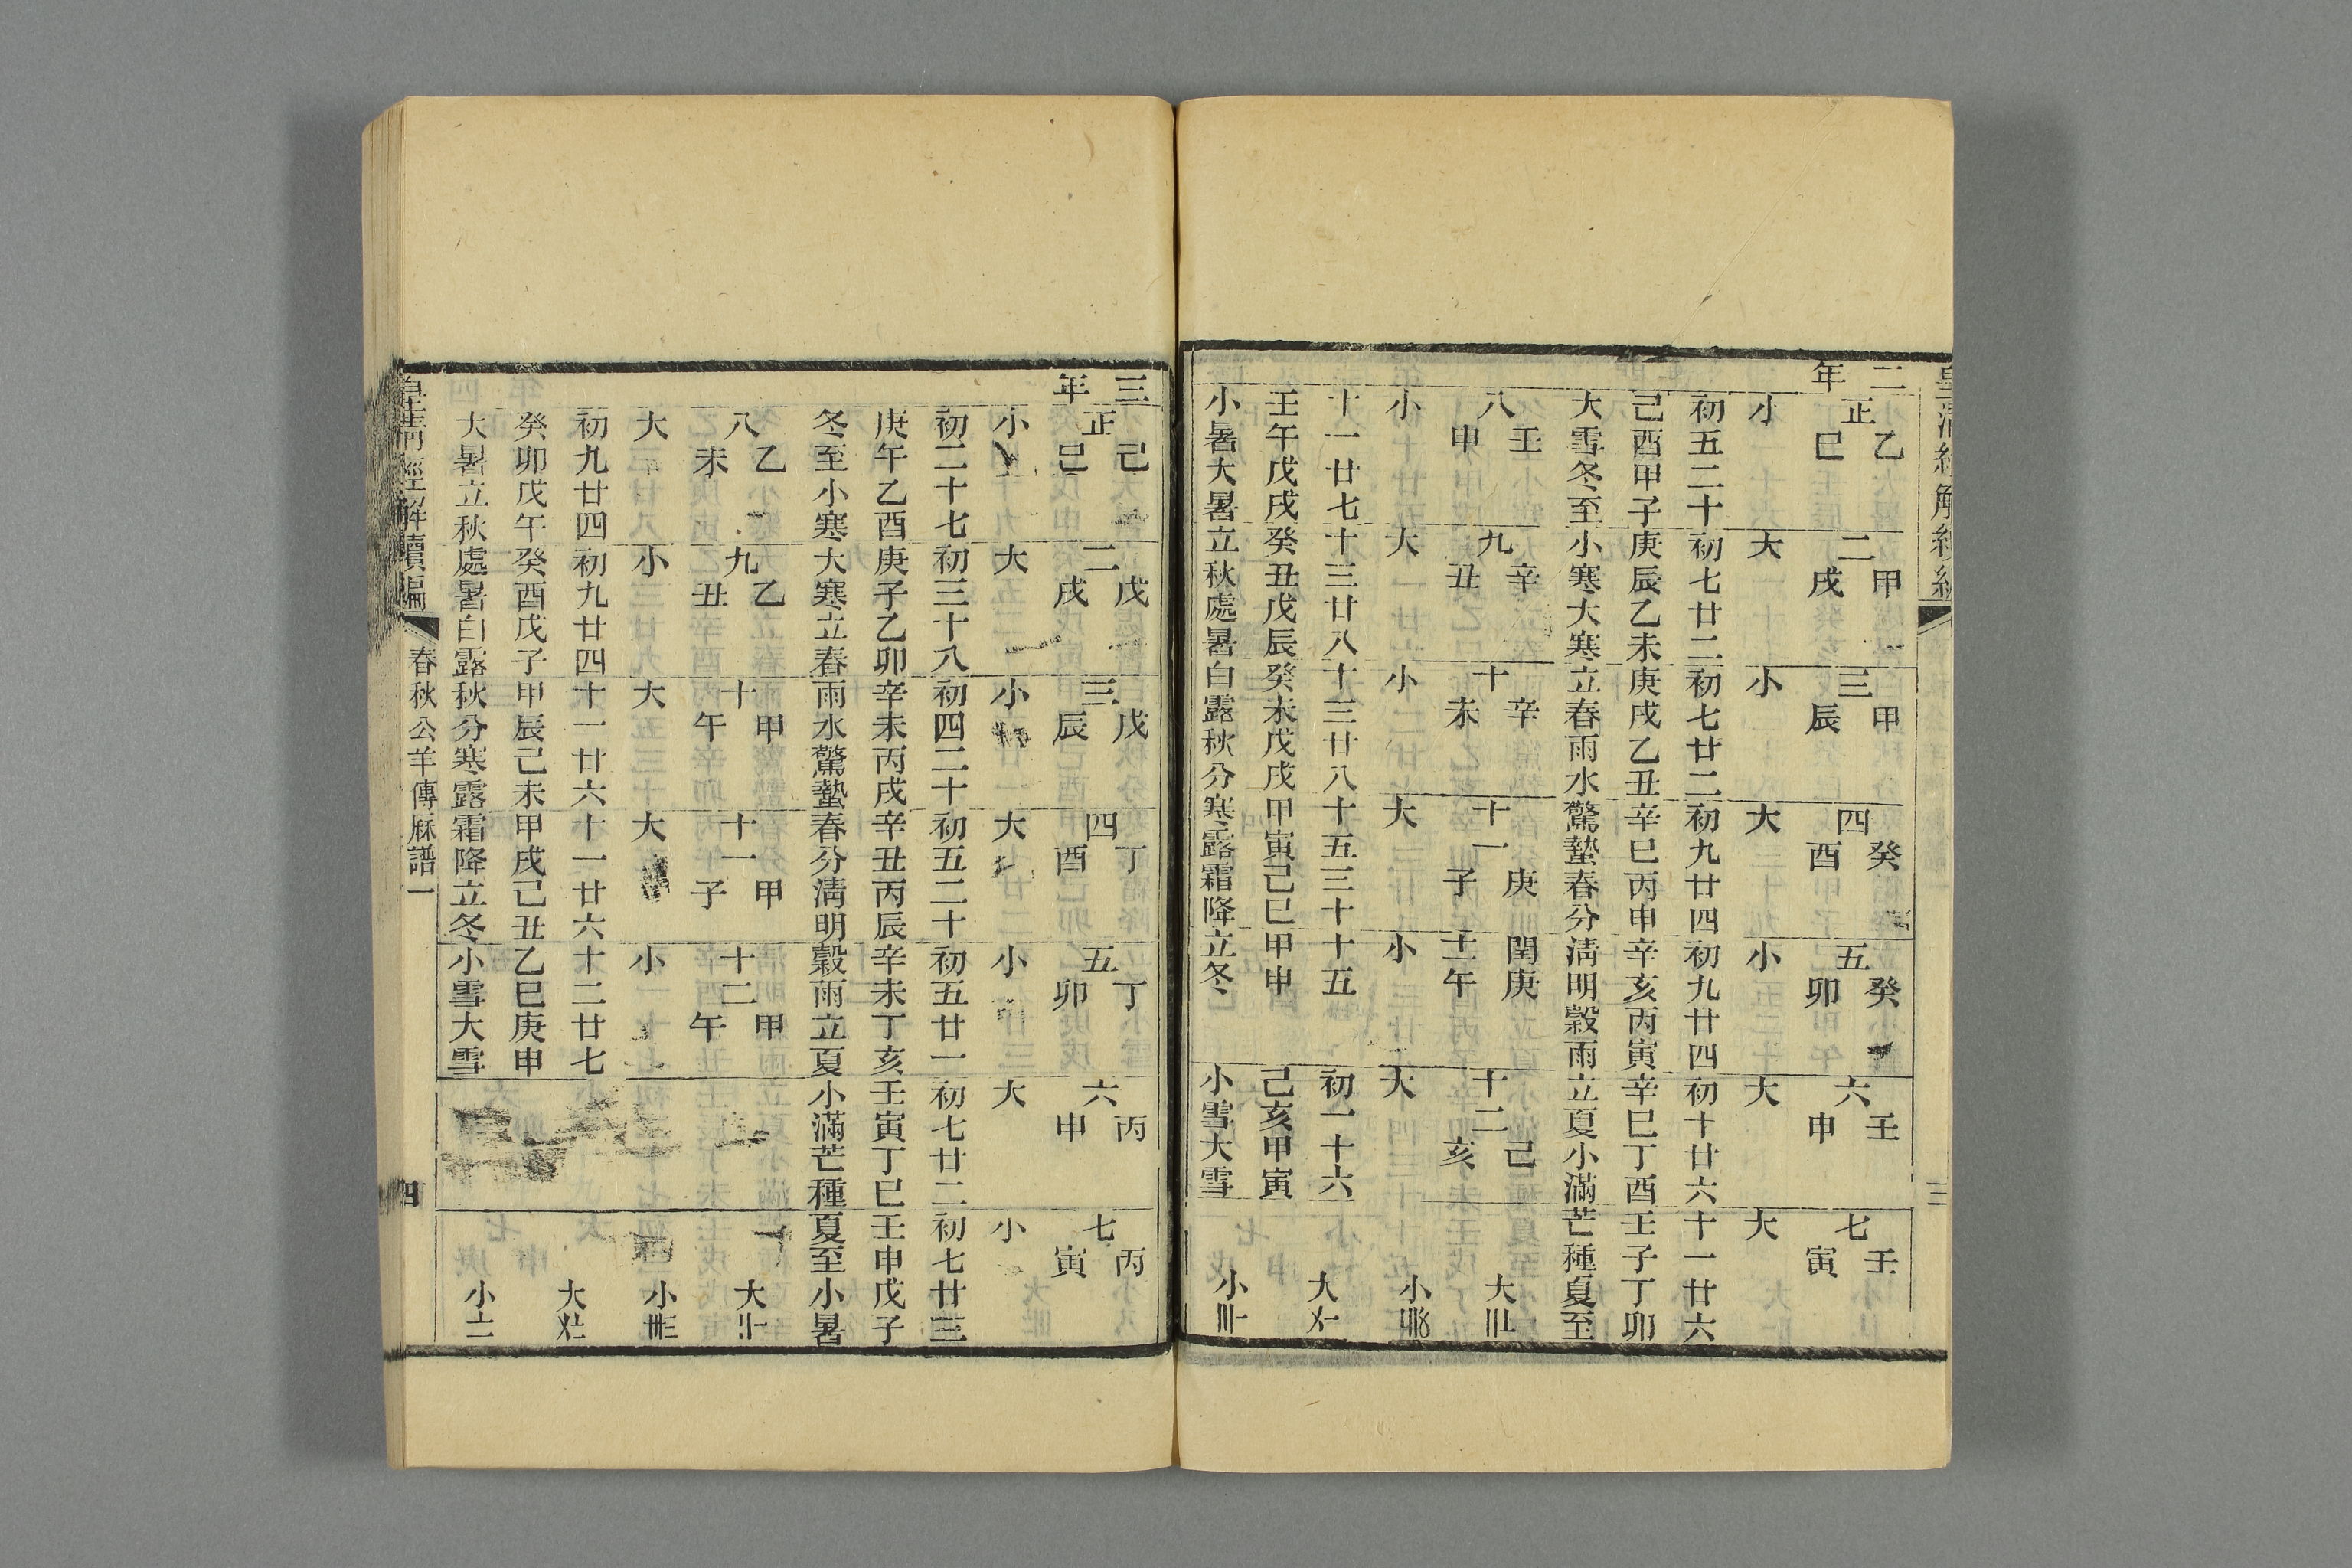 二乙甲甲癸癸壬壬
正二三四五六七
年巳戌辰酉卯申寅
小大小大小大大
初五二十初七廿二初七廿二初九廿四初九廿四初十廿六十一廿六
己酉甲子庚辰乙未庚戌乙丑辛巳丙申辛亥丙寅辛巳丁酉壬子丁卯
大雪冬至小寒大寒立春雨水驚蟄春分清明穀雨立夏小滿芒種夏至
壬辛辛庚閏庚己
八九十十一十二大
申丑未子壬午亥
小大小大小大小
十一廿七十三廿八十三廿八十五三十十五初一十六
壬午戊戌癸丑戊辰癸未戊戌甲寅己巳甲申己亥甲寅
大
小暑大暑立秋處暑白露秋分寒露霜降立冬小雪大雪
小
三己戊戊丁丁丙丙
正二三四五六七
年巳戌辰酉卯申寅
小大小大小大小
初二十七初三十八初四二十初五二十初五廿一初七廿二初七廿三
庚午乙酉庚子乙卯辛未丙戌辛丑丙辰辛未丁亥壬寅丁巳壬申戊子
冬至小寒大寒立春雨水驚蟄春分清明穀雨立夏小滿芒種夏至小暑
乙乙甲甲甲
八九十十一十二大
未丑午子午
大小大大小小
初九廿四初九廿四十一廿六十一廿六十二廿七
大
癸卯戊午癸酉戊子甲辰己未甲戌己丑乙巳庚申
大暑立秋處暑白露秋分寒露霜降立冬小雪大雪
小
春秋公羊傳厤譜一
四